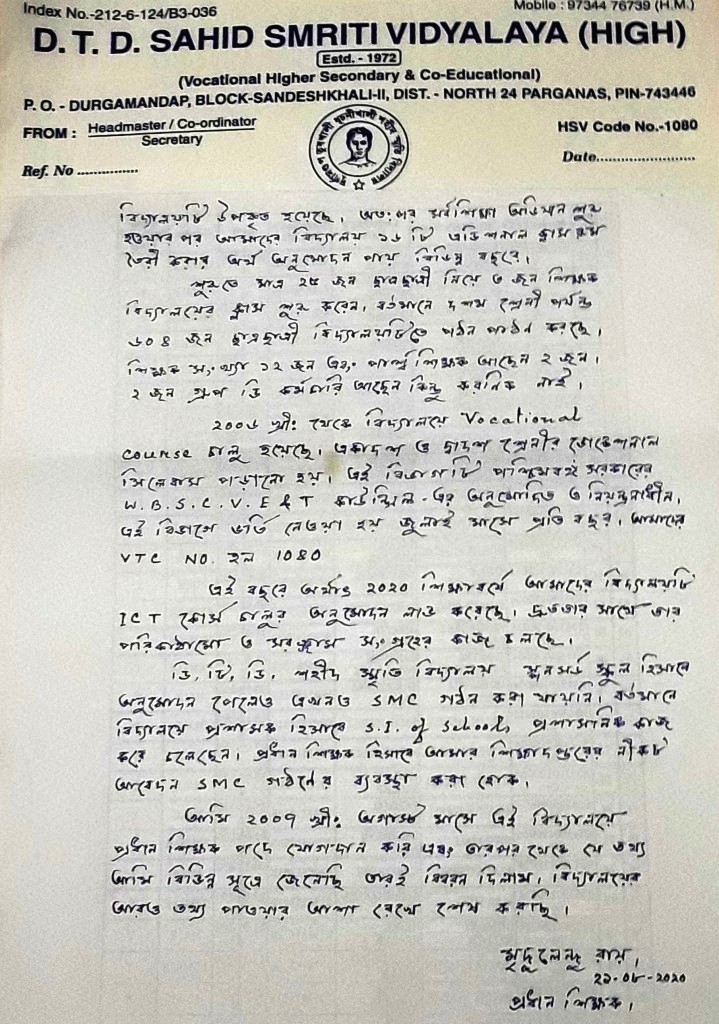 Index No.-212-6-124/B3-036
Mobile : 97344 76739 (H.M.)
D. T. D. SAHID SMRITI VIDYALAYA (HIGH)
Estd. - 1972
(Vocational Higher Secondary & Co-Educational)
P. O. - DURGAMANDAP, BLOCK-SANDESHKHALI-II, DIST. - NORTH 24 PARGANAS, PIN-743446
FROM : Headmaster / Co-ordinator
Secretary
HSV Code No.-1080
Ref. No ...............
Date............................
বিদ্যালয়টি উপকৃত হয়েছে। অতঃপর সর্বশিক্ষা অভিযান শুরু
হওয়ার পর আমাদের বিদ্যালয় ১৬ টি এডিশনাল ক্লাস রুম
তৈরী করার অর্থ অনুমোদন পায় বিভিন্ন বছরে।
শুরুতে মাত্র ২৫ জন ছাত্রছাত্রী নিয়ে ৩ জন শিক্ষক
বিদ্যালয়ের ক্লাস শুরু করেন, বর্তমানে দশম শ্রেনী পর্যন্ত
৬০৪ জন ছাত্রছাত্রী বিদ্যালয়টিতে পঠন পাঠন করছে।
শিক্ষক সংখ্যা ১২ জন এবং পার্শ্ব শিক্ষক আছেন ২ জন।
২ জন গ্রুপ ডি কর্মচারি আছেন কিন্তু করনিক নাই।
২০০৬ খ্রীঃ থেকে বিদ্যালয়ে Vocational
course চালু হয়েছে। একাদশ ও দ্বাদশ শ্রেনীর ভোকেশনাল
সিলেবাস পড়ানো হয়। এই বিভাগটি পশ্চিমবঙ্গ সরকারের
W.B.S.C.V.E&T কাউন্সিল-এর অনুমোদিত ও নিয়ন্ত্রনাধীন,
এই বিভাগে ভর্তি নেওয়া হয় জুলাই মাসে প্রতি বছর, আমাদের
VTC NO. হল 1080
এই বছরে অর্থাৎ ২০২০ শিক্ষাবর্ষে আমাদের বিদ্যালয়টি
ICT কোর্স চালুর অনুমোদন লাভ করেছে। দ্রুততার সাথে তার
পরিকাঠামো ও সরঞ্জাম সংগ্রহের কাজ চলছে।
ডি, টি, ডি, শহীদ স্মৃতি বিদ্যালয় স্পনসর্ড স্কুল হিসাবে
অনুমোদন পেলেও এখনও SMC গঠন করা যায়নি। বর্তমানে
বিদ্যালয়ে প্রশাসক হিসাবে S.I. of Schools প্রশাসনিক কাজ
করে চলেছেন। প্রধান শিক্ষক হিসাবে আমার শিক্ষাদপ্তরের নিকট
আবেদন SMC গঠনের ব্যবস্থা করা হোক।
আমি ২০০৭ খ্রীঃ অগাস্ট মাসে এই বিদ্যালয়ে
প্রধান শিক্ষক পদে যোগদান করি এবং তারপর থেকে যে তথ্য
আমি বিভিন্ন সূত্রে জেনেছি তারই বিবরন দিলাম, বিদ্যালয়ের
আরও তথ্য পাওয়ার আশা রেখে শেষ করছি।
মৃদুলেন্দু রায়,
২১-০৮-২০২০
প্রধান শিক্ষক,